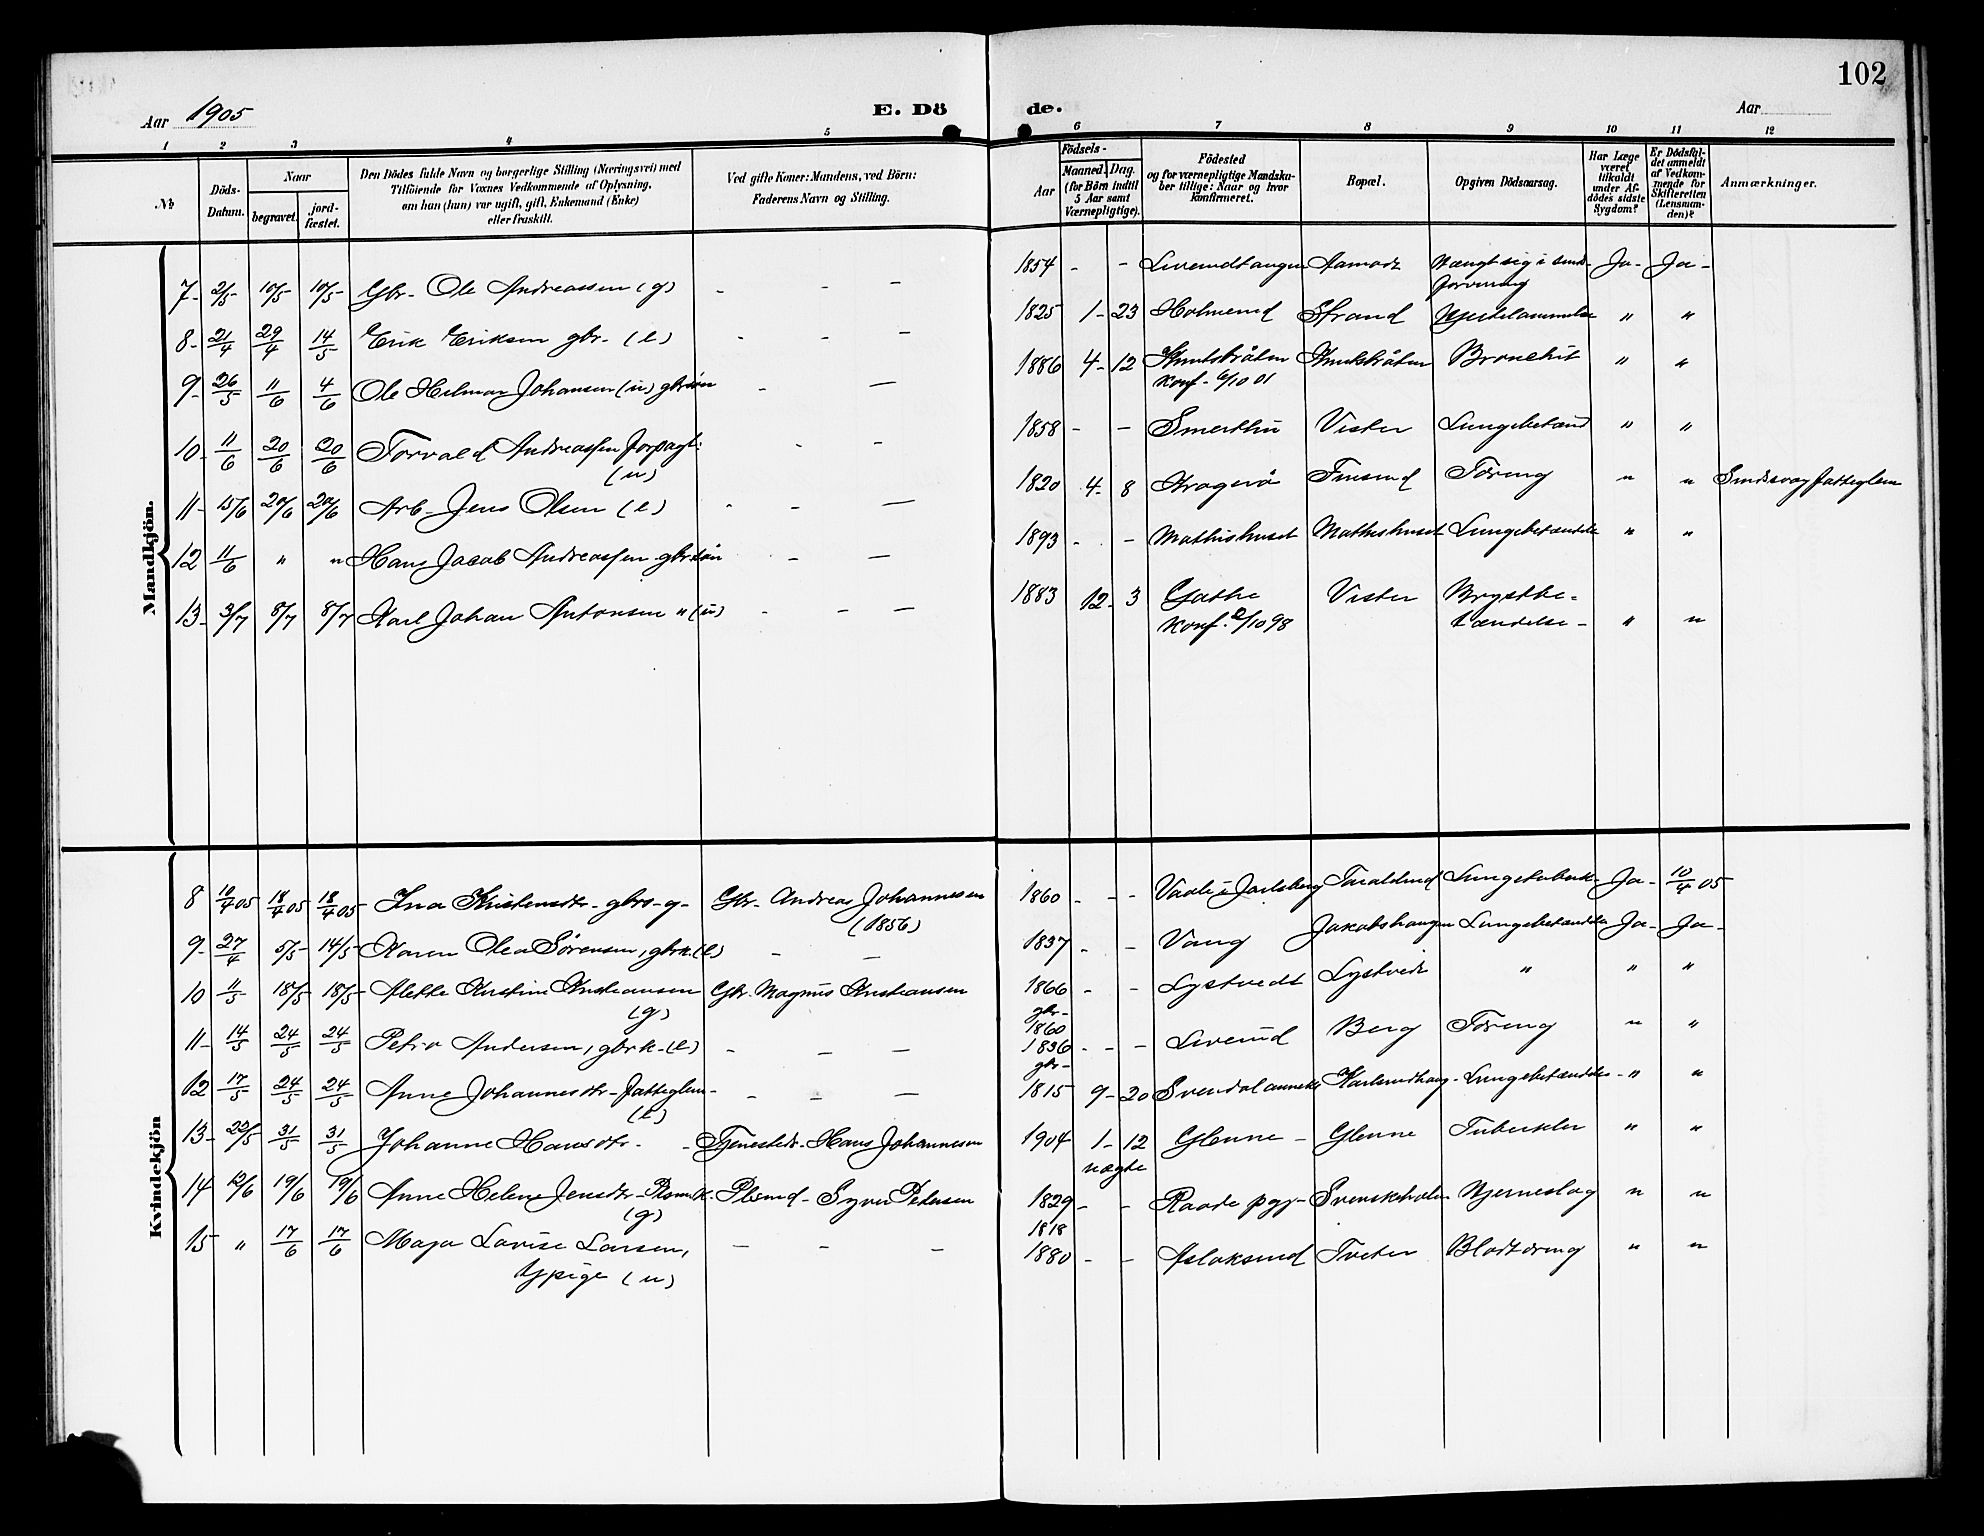 102
Aar 1905
E. Dö de.
Aar
1 2 3 4 5 6 7 8 9 10 11 12
No
Döds-Datum.
Naar
begravet.
jord-fæstet.
Den Dödes fulde Navn og borgerlige Stilling (Næringsvei) med
Tilföiende for Voxnes Vedkommende af Oplysning,
om han (hun) var ugift, gift, Enkemand (Enke)
eller fraskilt.
Ved gifte Koner: Mandens, ved Börn:
Faderens Navn og Stilling.
Födsels-
Aar
Maaned. Dag.
(for Börn indtil
5 Aar samt
Værnepligtige).
Födested
og for værnepligtige Mandska-
ber tillige: Naar og hvor
konfirmeret.
Bopæl.
Opgiven Dödsaarsag.
Har Læge
været
tilkaldt
under Af-
dödes sidste
Sygdom?
Er Dödsfal-
det anmeldt
af Vedkom-
mende for
Skifteretten
(Lensman-
den)?
Anmærkninger.
Mandkjön.
7- 2/5- 10/5 10/5- Gbr- Ole Andreassen (g) - - - 1854 - - Aamodt Hængt sig i sinds- Ja- Ja-
forvirring
8- 21/4 29/4 14/5 Erik Eriksen gbr- (e) - - - 1825 1- 23 Holmerud Strand " "
9- 26/5 11/6 4/6 Ole Helmar Johansen (u) gbrsön - - 1886 4- 12 Knutsbråten Knutsbråten Bronchit " "
Konf- 6/10 01
10- 11/6 20/6 20/6 Torvald Andreassen forpagt: - - 1858 - - Smerthu Vister Lungebetænd " "
(u)
11- 15/6 20/6 20/6 Arb- Jens Olsen (e) - - - 1820 4- 8 Kragerö Finsrud Tæring " " Sindssvag fatteglem
12 11/6 " " Hans Jacob Andreassen gbrsön - - 1893 - - Mathishuset Mathishuset Lungebetændels " "
13- 3/7 8/7 8/7 Karl Johan Antonsen " (u) - - - 1883 12- 3 Gathe Vister Brystbe-
Konf. 2/10 98 tændelse- " "
Kvindekjön
8 10/4 05 18/4 05 18/4 05 Ina Kristensdtr- gbrs- g- Gbr- Andreas Johannesen 1860 - - - Vaale i Jarlsberg Taraldrud Lungetuberk- Ja- 10/4 05
(1856)
9- 27/4 5/5- 14/5 Karen Olea Sörensen, gbrk. (e) - - 1837 - - Vang Jakobshaugen Lungebetændels Ja- Ja-
10 11/5 18/5 18/5 Alette Kristine Kristiansen Gbr. Magnus Kristiansen 1866 - - Lystvedt Lystvedt " " "
(g) gbr-
1860
11- 14/5 24/5 24/5 Petra Andersen, gbrk- (e) - - - 1836 - - - Liverud Berg Tæring " "
gbr-
12 17/5 24/5 24/5 Anne Johannesdtr- fatteglem- - - - 1815 9- 20 Lungebetændels- " "
(e)
13- 22/5 31/5 31/5 Johanne Hansdtr- - Tjenestedr- Hans Johannesen 1904 1- 12 Glenne- Glenne Tuberkler " "
uægte
14 12/6 19/6 19/6 Anne Helene Jensdtr- Plsmk. Plsmd- Syver Pedersen 1829 - - Raade pgj- Svenskeholm Hjerneslag " "
(g) 1818
15- " 17/6 17/6 Maja Lovise Larsen, - - - 1880 - - Aslaksrud Tveter Blodtæring " "
tjpige (u)